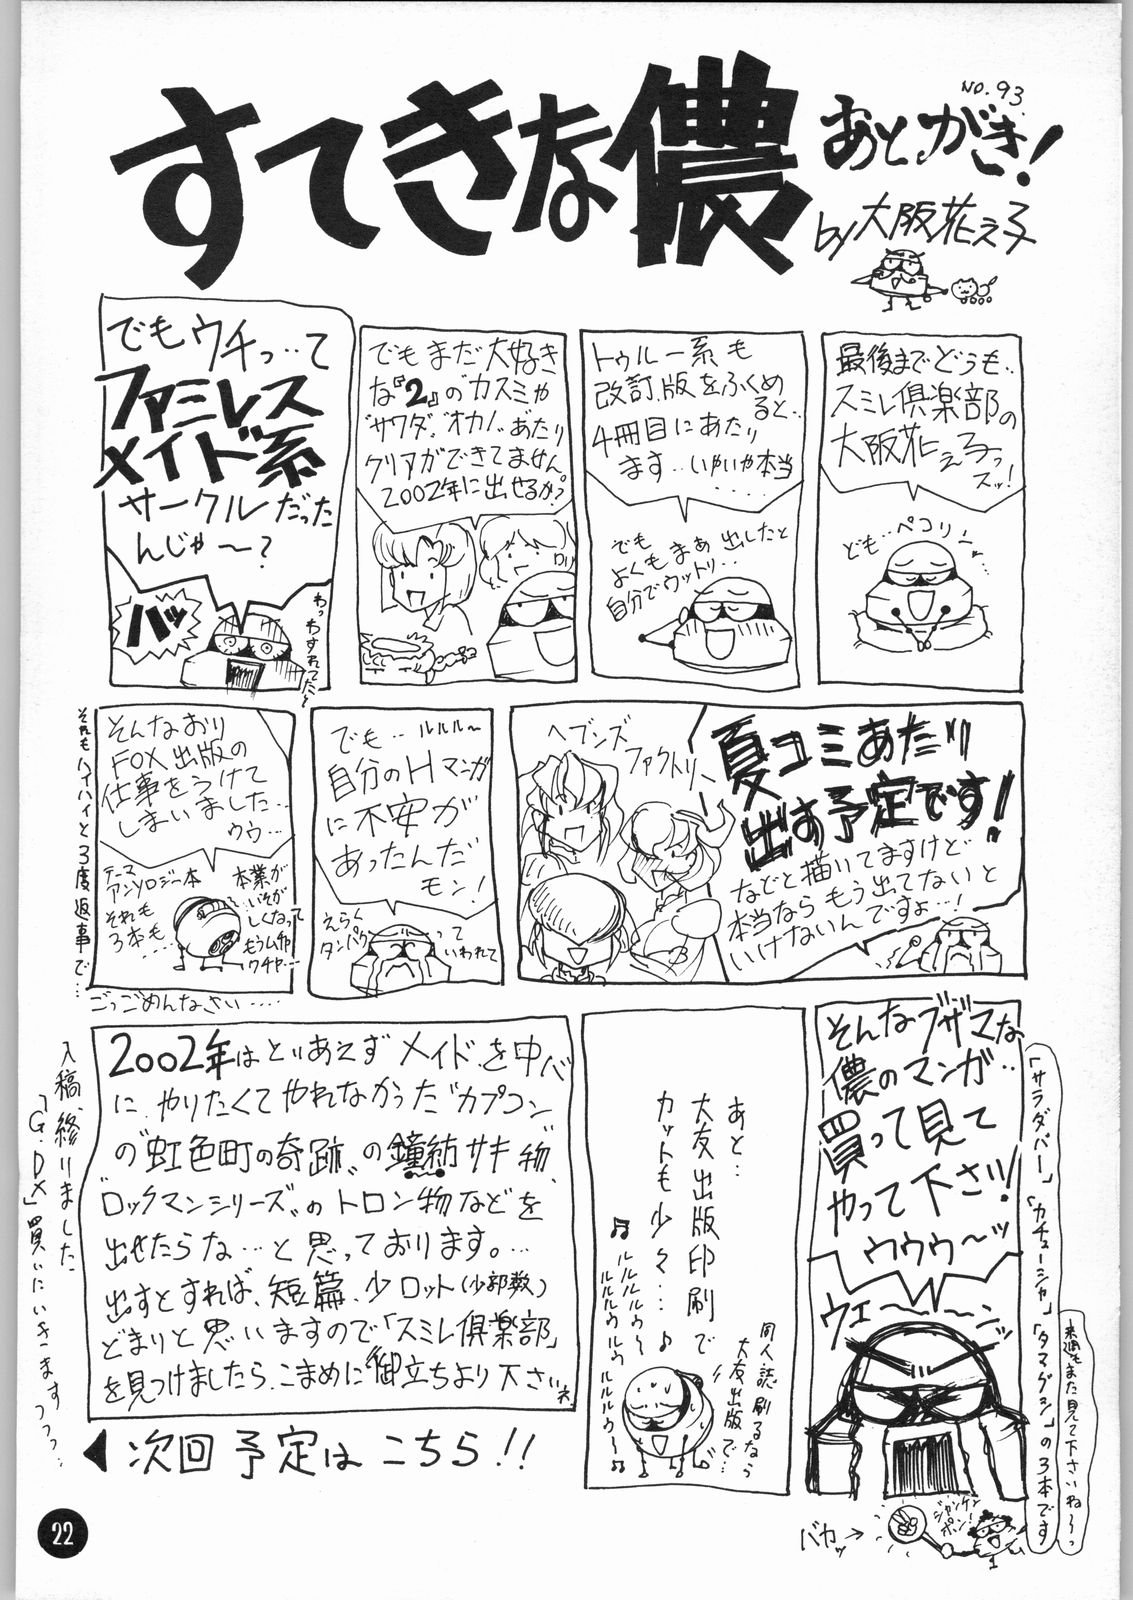 NO.93
すてきな儂
あとがき!
by 大阪花え子
最後までどうも..
スミレ倶楽部の
大阪花え子っ
スッ!
ども..ペコリーッ
トゥルー系も
改訂版をふくめ
ると..
4冊目にあたり
ます..いやいや本当
....
でも
よくもまぁ出したと
自分でウットリ...
でもまだ大好き
な『2』のカスミや
"サワダ""オカノ"あたり
クリアができてません
2002年に出せるか?
ロリ
でもウチっ..て
ファミレス
メイド系
サークルだった
んじゃ〜?
バッ
わっわすれてたッ
ヘブンズ
ファクトリー
夏コミあたり
出す予定です!
などと描いてますけど
本当ならもう出てないと
いけないんですょ..!
でも..ルルル〜
自分のHマンガ
に不安が
あったんだ
モン!
えらく
タンパク
って
いわれて
そんなおり
FOX出版の
仕事をうけて
しまいました...
ウゥ...
テーマ
アンソロジー本
それも
3本も....
本業が
いそが
しくなって
もうムチャ
クチャ...
それもハイハイと3度返事で...
ごっごめんなさい....
そんなブザマな
儂のマンガ..
買って見て
やって下さい!
ウゥゥ〜ッ
ウェ〜〜ン
「サラダバー」「カチューシャ」「タマグン」の3本です
来週もまた見て下さいね〜っ
ジャンケン
ポン!
バカッ→
あと...
大友出版印刷で
カットも少々...♪
♫ルルルルゥ〜
ルルルゥルゥ
ルルルゥ〜♫
同人誌刷るなら
大友出版で...
2002年はとりあえずメイドを中心
に、やりたくてやれなかった"カプコン"
の"虹色町の奇跡"の鐘紡サキ物、
"ロックマンシリーズ"のトロン物などを
出せたらな...と思っております。...
出すとすれば、短篇、少ロット(少部数)
どまりと思いますので「スミレ倶楽部」
を見つけましたら、こまめに御立ちより下さいネ
入稿、終りました
「G.DX」買いにいきますっっっ..
◀次回予定はこちら!!
22